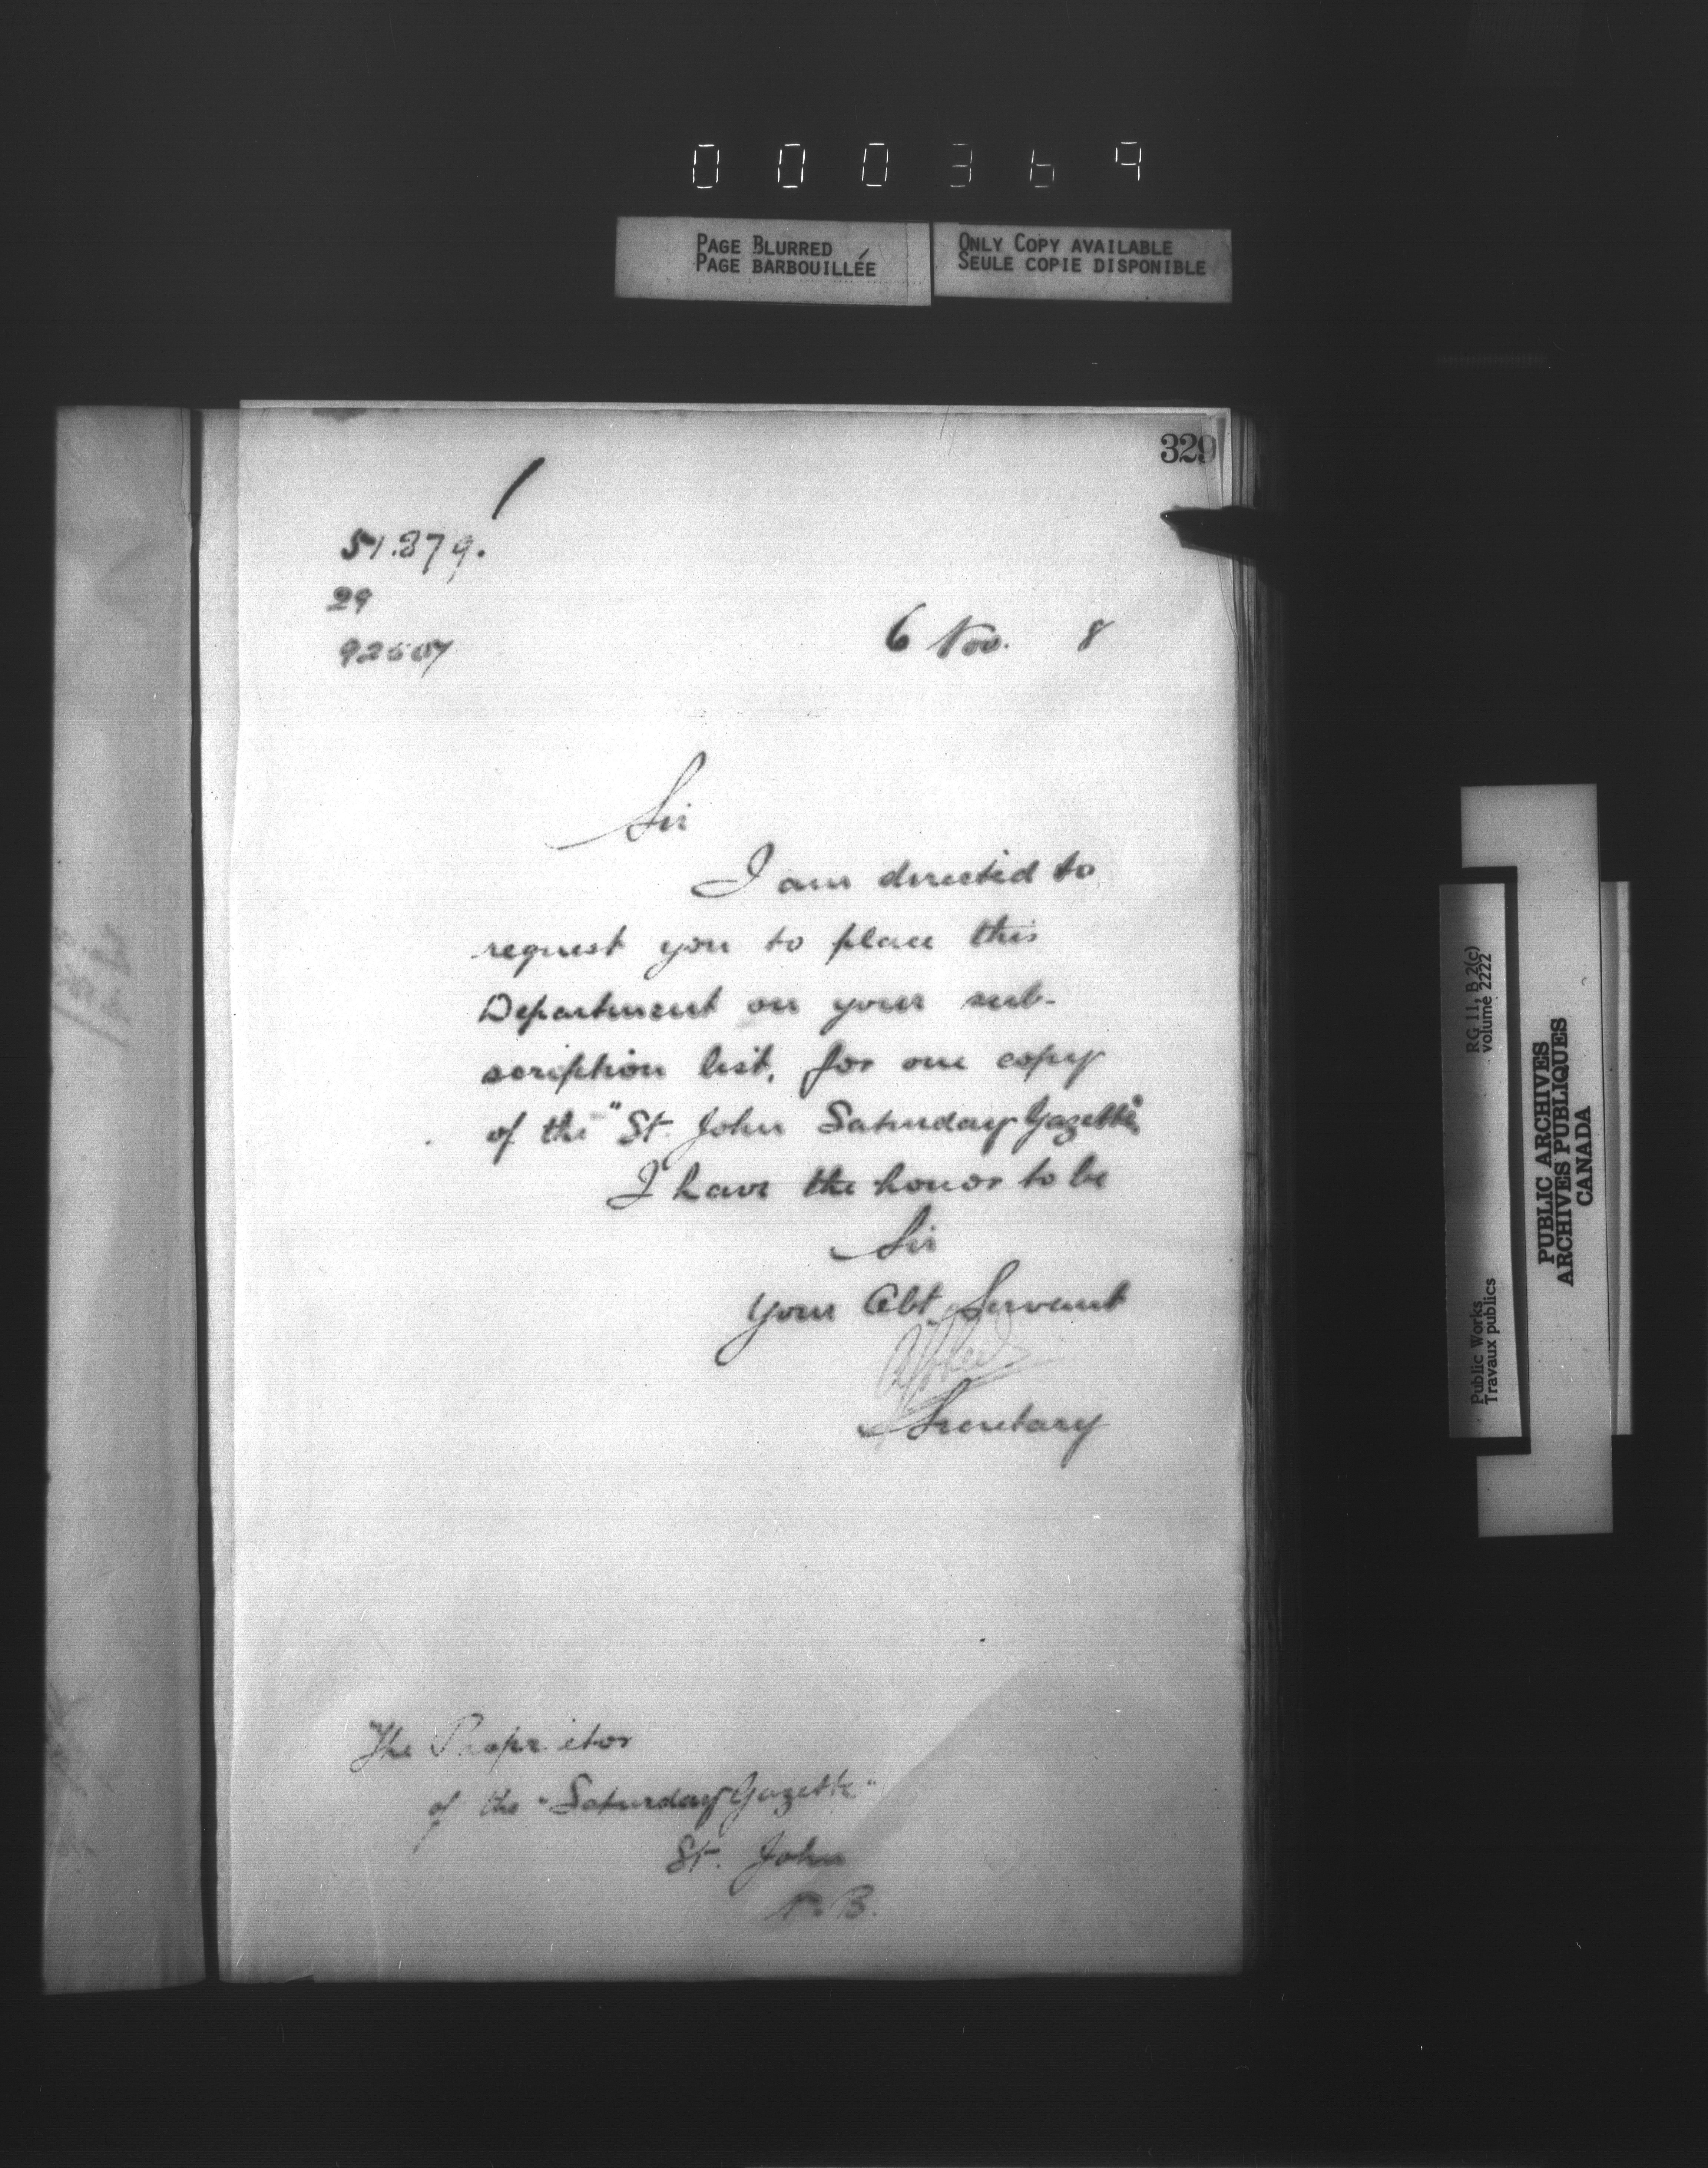 000369
PAGE BLURRED
PAGE BARBOUILLÉE
ONLY COPY AVAILABLE
SEULE COPIE DISPONIBLE
329
51.879.
29
92507
6 Nov. 8
Sir
I am directed to
request you to place this
Department on your sub-
scription list, for one copy
of the "St. John Saturday Gazette".
I have the honor to be
Sir
Your Obt. Servant
Secretary
The Proprietor
of the "Saturday Gazette"
St. John
N.B.
RG 11, B 2(c)
volume 2222
Public Works
Travaux publics
PUBLIC ARCHIVES
ARCHIVES PUBLIQUES
CANADA